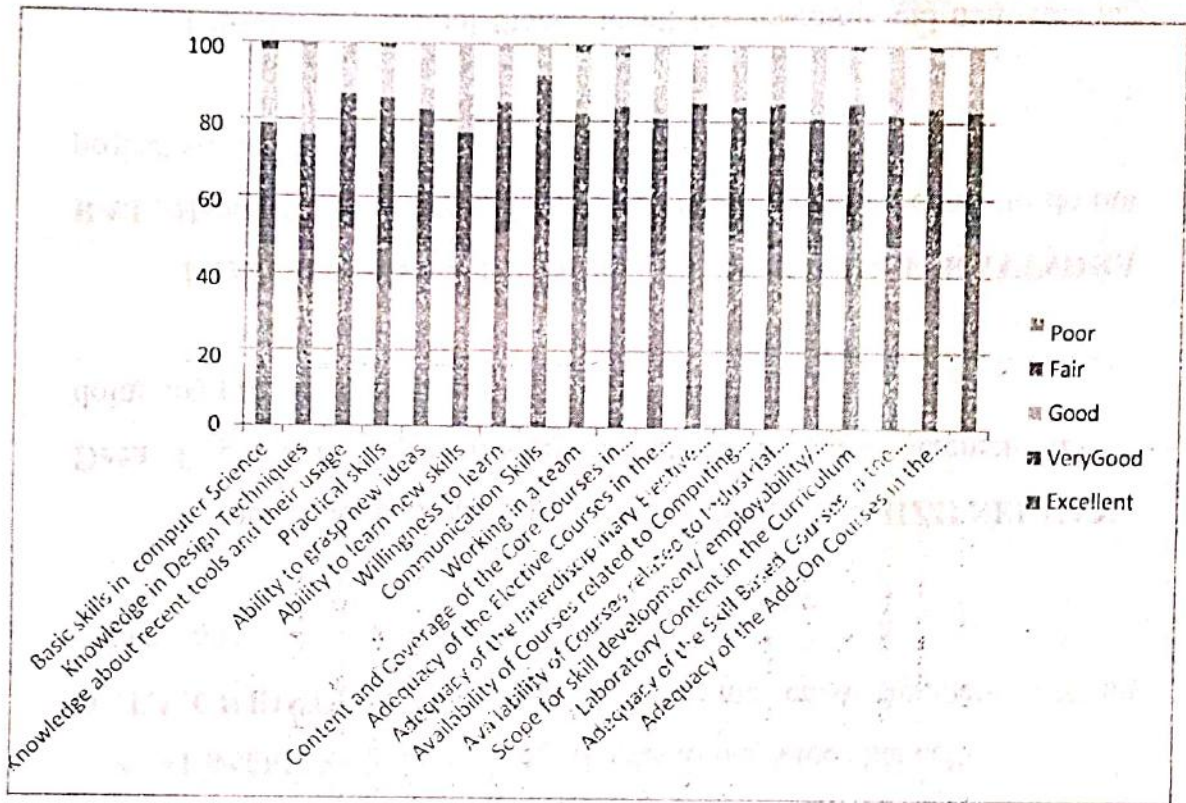 100
80
60
40
20
0
Basic skills in computer Science
Knowledge in Design Techniques
Knowledge about recent tools and their usage
Practical skills
Ability to grasp new ideas
Ability to learn new skills
Willingness to learn
Communication Skills
Working in a team
Content and Coverage of the Core Courses in...
Adequacy of the Elective Courses in the...
Adequacy of the Interdisciplinary Elective...
Availability of Courses related to Computing...
Availability of Courses related to Industrial...
Scope for Skill development/ employability/...
Laboratory Content in the Curriculum
Adequacy of the Skill Based Courses in the...
Adequacy of the Add-On Courses in the...
Poor
Fair
Good
VeryGood
Excellent